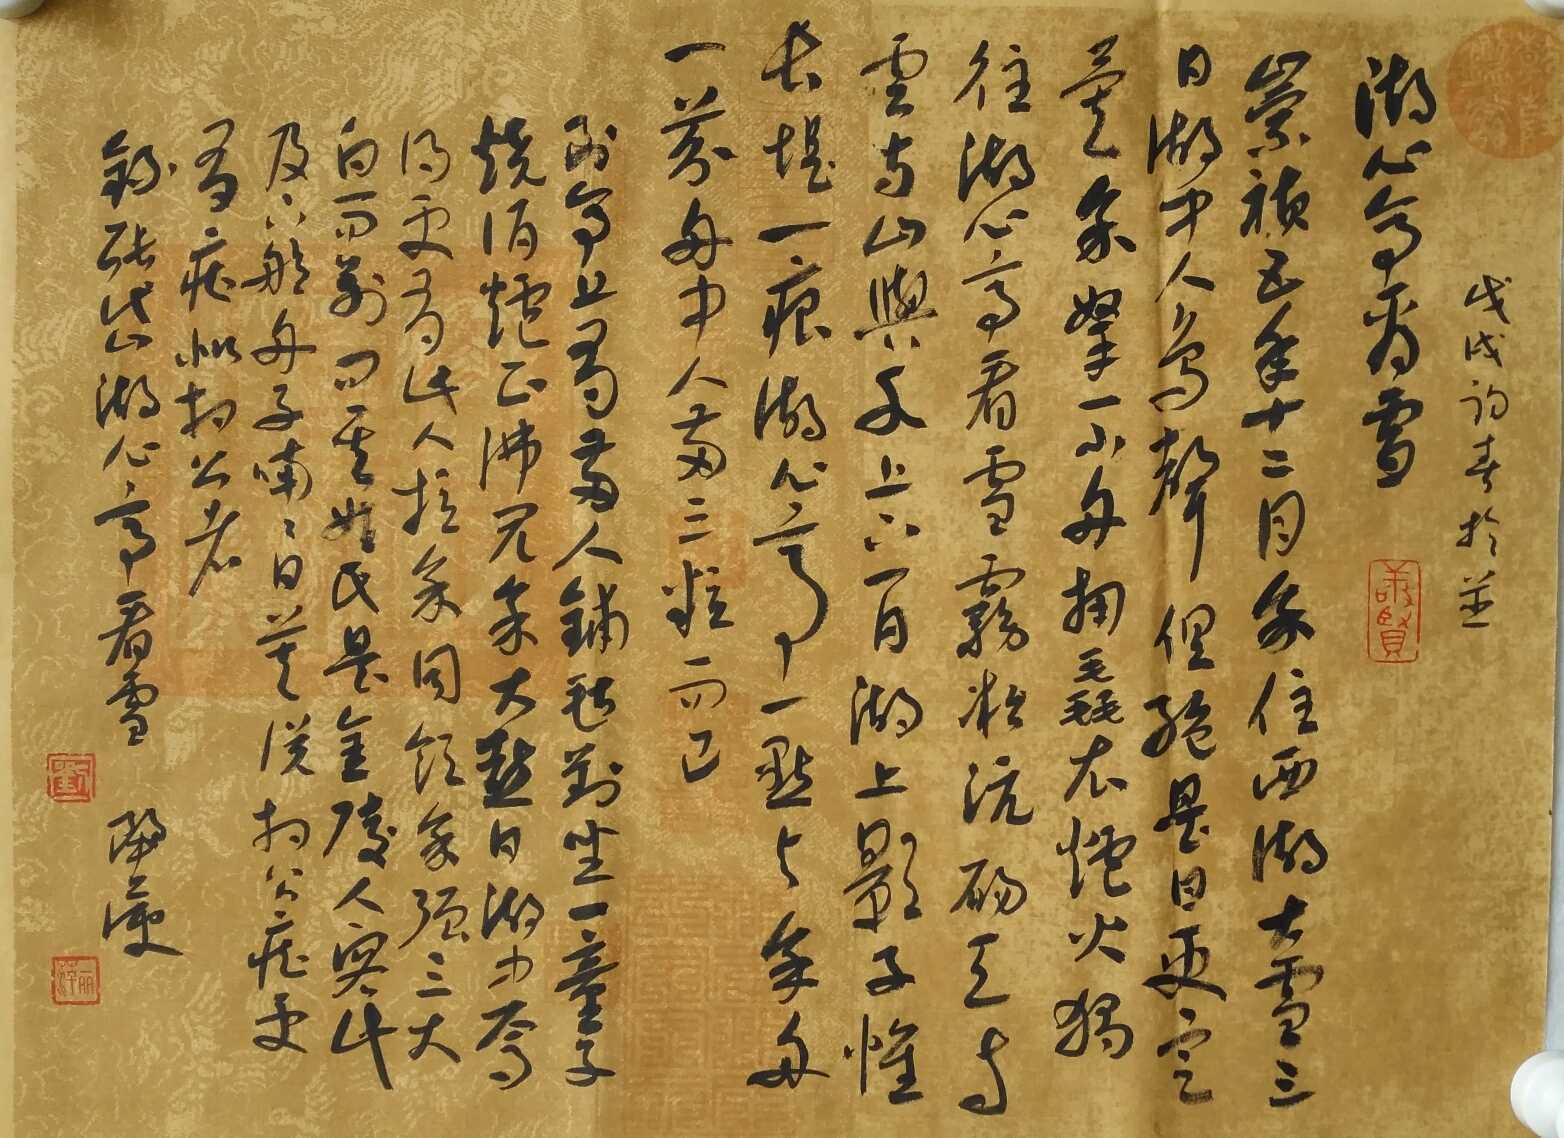 戊戌初春於並
湖心亭看雪
崇禎五年十二月余住西湖大雪三
日湖中人鳥聲俱絕是日更定
矣余拏一小舟擁毳衣爐火獨
往湖心亭看雪霧凇沆碭天与
雲与山與水上下一白湖上影子惟
長堤一痕湖心亭一點与余舟
一芥舟中人兩三粒而已
到亭上有兩人鋪氈對坐一童子
燒酒爐正沸見余大驚曰湖中焉
得更有此人拉余同飲余強三大
白而別問其姓氏是金陵人客此
及下船舟子喃喃曰莫說相公癡更
有癡似相公者
錄張岱湖心亭看雪